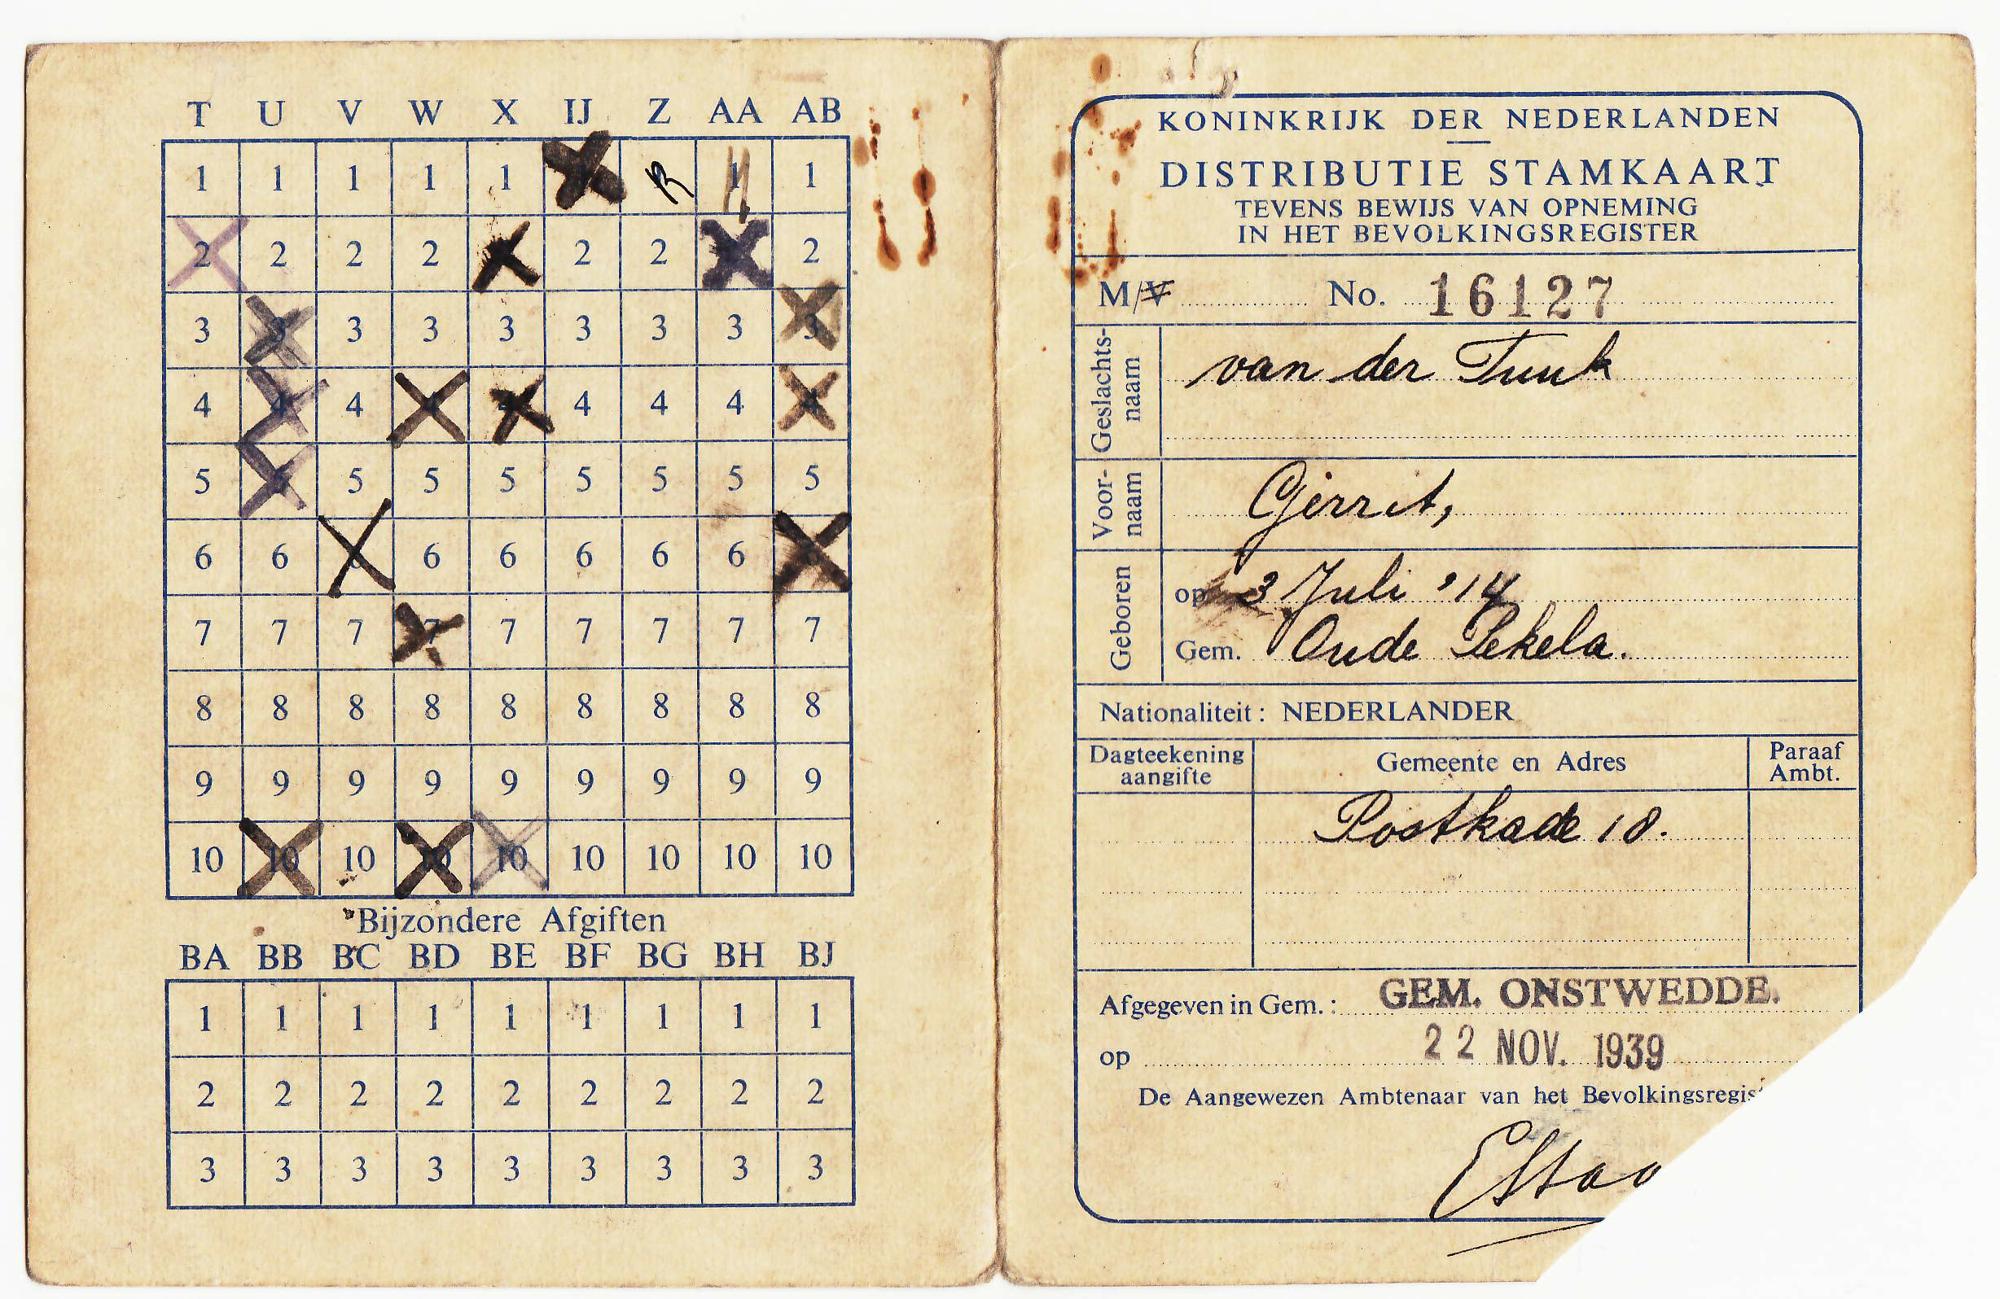 T U V W X IJ Z AA AB
1 1 1 1 1 1 1
2 2 2 2 2 2 2 2
3 3 3 3 3 3 3 3
4 4 4 4 4 4 4 4 4
5 5 5 5 5 5 5 5
6 6 6 6 6 6 6
7 7 7 7 7 7 7 7 7
8 8 8 8 8 8 8 8 8
9 9 9 9 9 9 9 9 9
10 10 10 10 10 10 10 10 10
Bijzondere Afgiften
BA BB BC BD BE BF BG BH BJ
1 1 1 1 1 1 1 1 1
2 2 2 2 2 2 2 2 2
3 3 3 3 3 3 3 3 3
KONINKRIJK DER NEDERLANDEN
DISTRIBUTIE STAMKAART
TEVENS BEWIJS VAN OPNEMING
IN HET BEVOLKINGSREGISTER
M/V No. 16127
Geslachts-
naam
van der Tuuk
Voor-
naam
Gerrit,
Geboren
op 3 Juli '14
Gem. Oude Pekela.
Nationaliteit: NEDERLANDER
Dagteekening
aangifte
Gemeente en Adres
Paraaf
Ambt.
Postkade 18.
Afgegeven in Gem.: GEM. ONSTWEDDE.
op 22 NOV. 1939
De Aangewezen Ambtenaar van het Bevolkingsregis